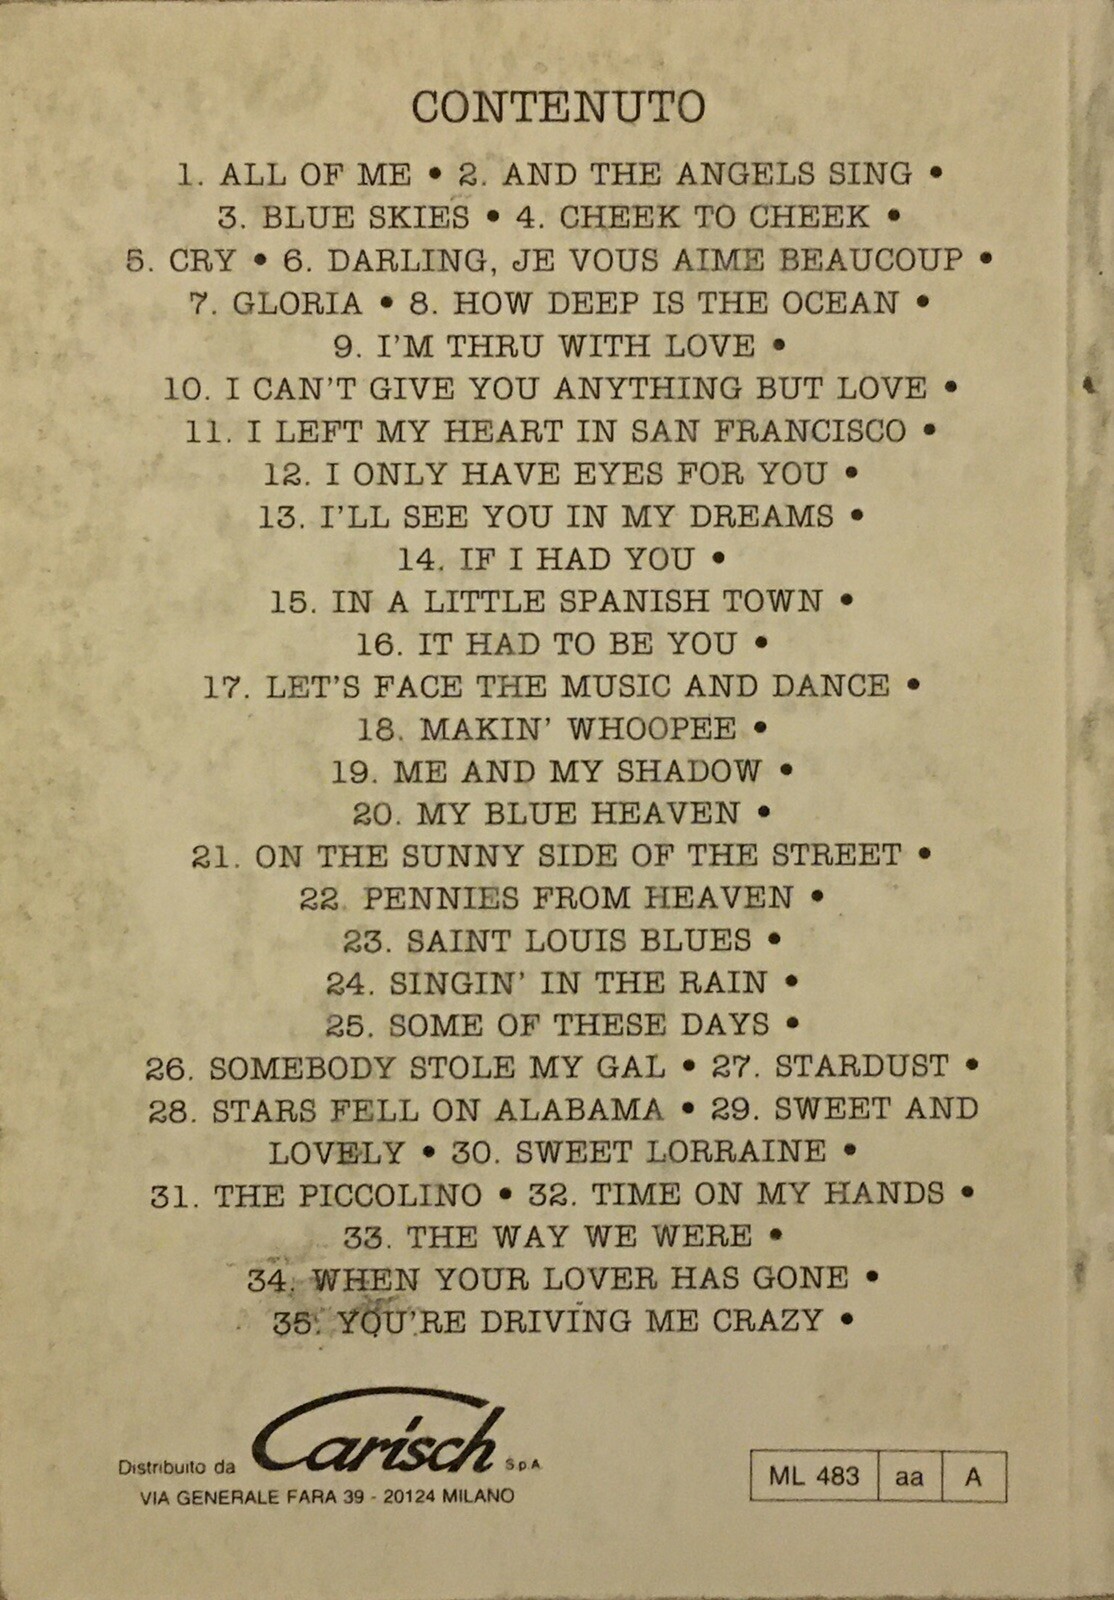 CONTENUTO
1. ALL OF ME • 2. AND THE ANGELS SING •
3. BLUE SKIES • 4. CHEEK TO CHEEK •
5. CRY • 6. DARLING, JE VOUS AIME BEAUCOUP •
7. GLORIA • 8. HOW DEEP IS THE OCEAN •
9. I'M THRU WITH LOVE •
10. I CAN'T GIVE YOU ANYTHING BUT LOVE •
11. I LEFT MY HEART IN SAN FRANCISCO •
12. I ONLY HAVE EYES FOR YOU •
13. I'LL SEE YOU IN MY DREAMS •
14. IF I HAD YOU •
15. IN A LITTLE SPANISH TOWN •
16. IT HAD TO BE YOU •
17. LET'S FACE THE MUSIC AND DANCE •
18. MAKIN' WHOOPEE •
19. ME AND MY SHADOW •
20. MY BLUE HEAVEN •
21. ON THE SUNNY SIDE OF THE STREET •
22. PENNIES FROM HEAVEN •
23. SAINT LOUIS BLUES •
24. SINGIN' IN THE RAIN •
25. SOME OF THESE DAYS •
26. SOMEBODY STOLE MY GAL • 27. STARDUST •
28. STARS FELL ON ALABAMA • 29. SWEET AND
LOVELY • 30. SWEET LORRAINE •
31. THE PICCOLINO • 32. TIME ON MY HANDS •
33. THE WAY WE WERE •
34. WHEN YOUR LOVER HAS GONE •
35. YOU'RE DRIVING ME CRAZY •
Distribuito da Carisch S.p.A.
VIA GENERALE FARA 39 - 20124 MILANO
ML 483 aa A